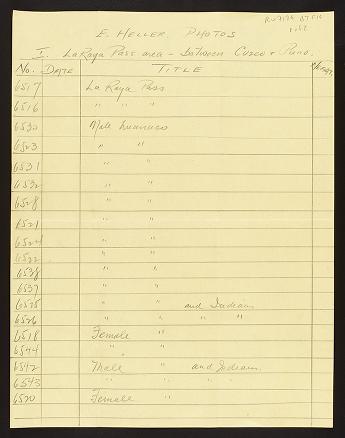 E. HELLER PHOTOS
I. La Raya Pass area - Between Cuzco + Puno.
No. DATE TITLE
6517 La Raya Pass
6516 " " "
6530 Male huanaco
6523 " "
6531 " "
6532 " "
6528 " "
6521 " "
6524 " "
6522 " "
6538 " "
6537 " "
6525 " " and Indians
6526 " " " "
6518 Female "
6544 " "
6542 Male " and Indians.
6543 " " " "
6520 Female "